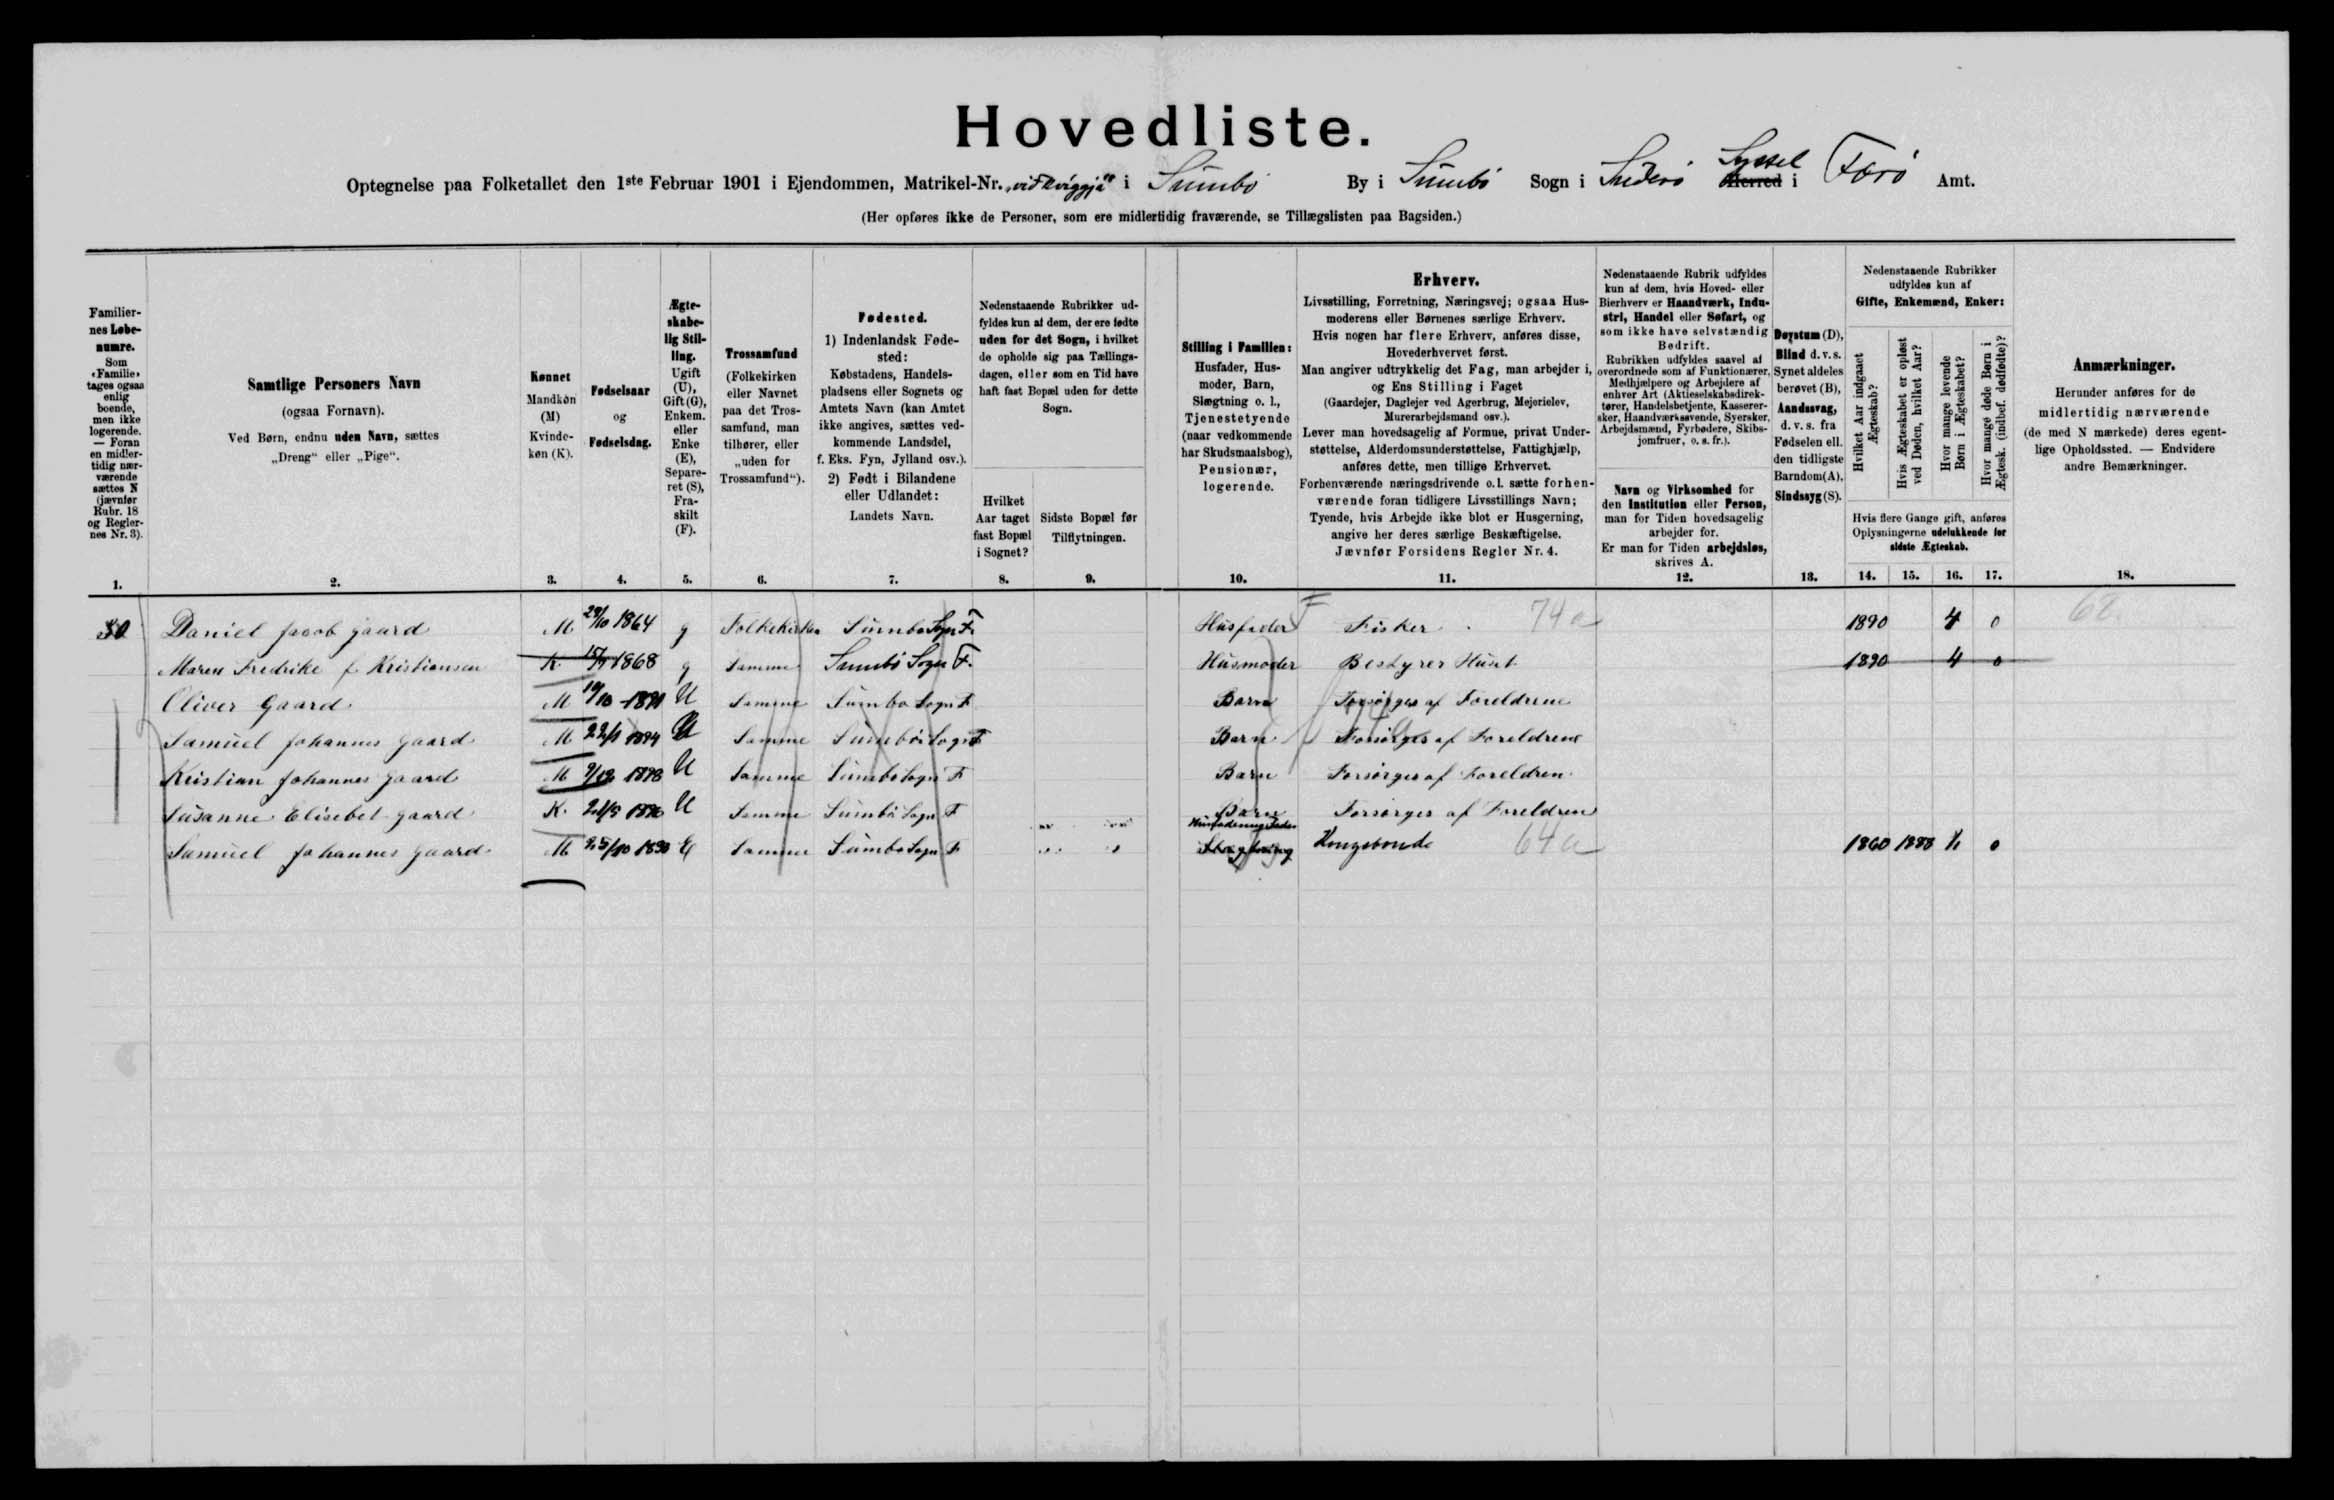 Hovedliste.
Optegnelse paa Folketallet den 1ste Februar 1901 i Ejendommen, Matrikel-Nr. i Sumbö By i Sumbö Sogn i Suderö Syssel Herred i Færö Amt.
(Her opføres ikke de Personer, som ere midlertidig fraværende, se Tillægslisten paa Bagsiden.)
Familiernes Løbenumre.
Som «Familie» tages ogsaa enlig boende, men ikke logerende. — Foran en midlertidig nærværende sættes N (jævnfør Rubr. 18 og Reglernes Nr. 3).
Samtlige Personers Navn
(ogsaa Fornavn).
Ved Børn, endnu uden Navn, sættes
„Dreng“ eller „Pige“.
Kønnet
Mandkøn (M)
Kvindekøn (K).
Fødselsaar
og
Fødselsdag.
Ægteskabelig Stilling.
Ugift (U), Gift (G), Enkem. eller Enke (E), Separeret (S), Fraskilt (F).
Trossamfund
(Folkekirken eller Navnet paa det Trossamfund, man tilhører, eller „uden for Trossamfund“).
Fødested.
1) Indenlandsk Fødested:
Købstadens, Handelspladsens eller Sognets og Amtets Navn (kan Amtet ikke angives, sættes vedkommende Landsdel, f. Eks. Fyn, Jylland osv.).
2) Født i Bilandene eller Udlandet:
Landets Navn.
Nedenstaaende Rubrikker udfyldes kun af dem, der ere fødte uden for det Sogn, i hvilket de opholde sig paa Tællingsdagen, eller som en Tid have haft fast Bopæl uden for dette Sogn.
Hvilket Aar taget fast Bopæl i Sognet?
Sidste Bopæl før Tilflytningen.
Stilling i Familien:
Husfader, Husmoder, Barn, Slægtning o. l., Tjenestetyende (naar vedkommende har Skudsmaalsbog), Pensionær, logerende.
Erhverv.
Livsstilling, Forretning, Næringsvej; ogsaa Husmoderens eller Børnenes særlige Erhverv.
Hvis nogen har flere Erhverv, anføres disse, Hovederhvervet først.
Man angiver udtrykkelig det Fag, man arbejder i, og Ens Stilling i Faget
(Gaardejer, Daglejer ved Agerbrug, Mejerielev, Murerarbejdsmand osv.).
Lever man hovedsagelig af Formue, privat Understøttelse, Alderdomsunderstøttelse, Fattighjælp, anføres dette, men tillige Erhvervet.
Forhenværende næringsdrivende o. l. sætte forhenværende foran tidligere Livsstillings Navn;
Tyende, hvis Arbejde ikke blot er Husgerning, angive her deres særlige Beskæftigelse.
Jævnfør Forsidens Regler Nr. 4.
Nedenstaaende Rubrik udfyldes kun af dem, hvis Hoved- eller Bierhverv er Haandværk, Industri, Handel eller Søfart, og som ikke have selvstændig Bedrift.
Rubrikken udfyldes saavel af overordnede som af Funktionærer, Medhjælpere og Arbejdere af enhver Art (Aktieselskabsdirektører, Handelsbetjente, Kasserersker, Haandværkssvende, Syersker, Arbejdsmænd, Fyrbødere, Skibsjomfruer, o. s. fr.).
Navn og Virksomhed for den Institution eller Person, man for Tiden hovedsagelig arbejder for.
Er man for Tiden arbejdsløs, skrives A.
Døvstum (D),
Blind d. v. s. Synet aldeles berøvet (B),
Aandssvag, d. v. s. fra Fødselen ell. den tidligste Barndom (A),
Sindssyg (S).
Nedenstaaende Rubrikker udfyldes kun af
Gifte, Enkemænd, Enker:
Hvilket Aar indgaaet Ægteskab?
Hvis Ægteskabet er opløst ved Døden, hvilket Aar?
Hvor mange levende Børn i Ægteskabet?
Hvor mange døde Børn i Ægtesk. (indbef. dødfødte)?
Hvis flere Gange gift, anføres Oplysningerne udelukkende for sidste Ægteskab.
Anmærkninger.
Herunder anføres for de midlertidig nærværende (de med N mærkede) deres egentlige Opholdssted. — Endvidere andre Bemærkninger.
1. 2. 3. 4. 5. 6. 7. 8. 9. 10. 11. 12. 13. 14. 15. 16. 17. 18.
Daniel Jacob Gaard M 29/10 1864 g Folkekirken Sumbö Sogn F. Husfader Fisker 74a 1890 4 0 62
Maren Fredrike f. Kristiansen K. 1868 g Samme Sumbö Sogn F. Husmoder Bestyrer Huset 1890 4 0
Oliver Gaard M U Samme Sumbö Sogn F Barn Forsörges af Foreldrene
Samuel Johannes Gaard M U Samme Sumbö Sogn F Barn Forsörges af Foreldrene
Kristian Johannes Gaard M U Samme Sumbö Sogn F Barn Forsörges af Foreldren
Susanne Elisebet Gaard K. U Samme Sumbö Sogn F Barn Forsörges af Foreldren
Samuel Johannes Gaard M 25/10 E Samme Sumbö Sogn F Kongsbonde 64a 1860 1888 0